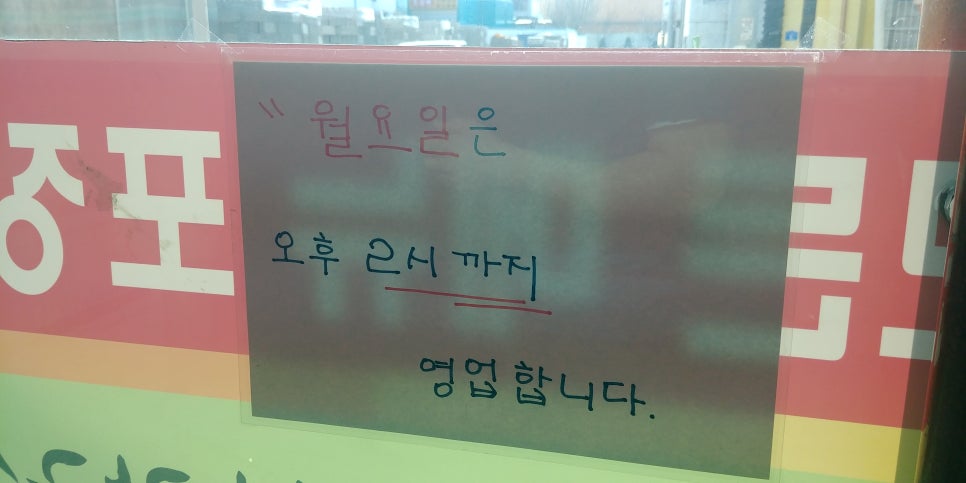 "월요일은
오후 2시 까지
영업합니다.